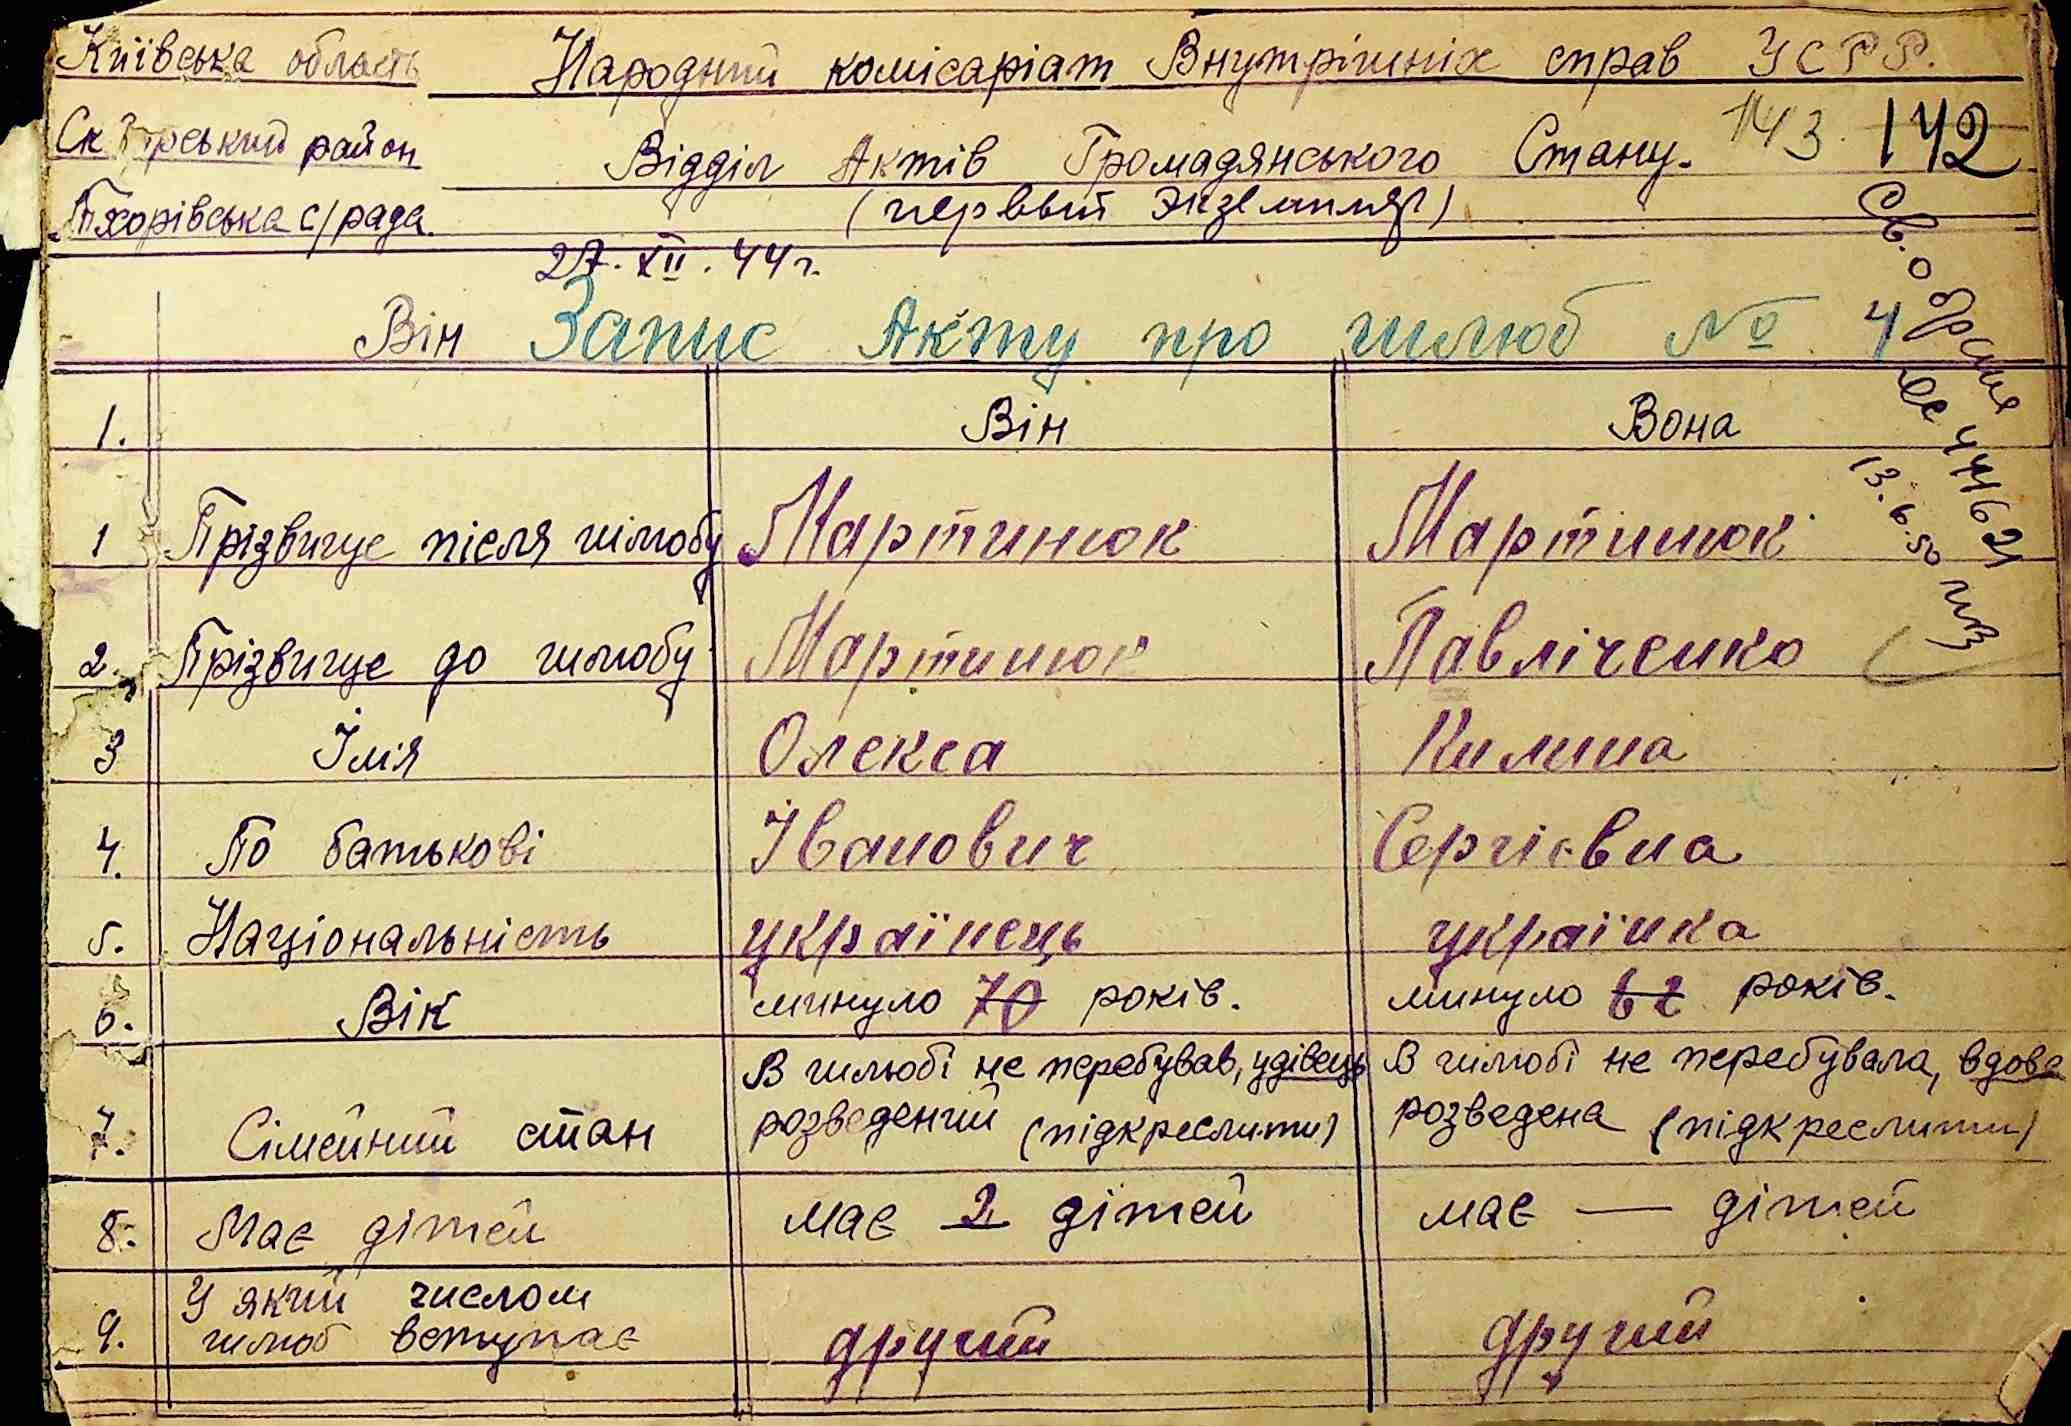 Київська область Народний комісаріат Внутрішніх справ УСРР.
Сквирський район Відділ Актів Громадянського Стану. 143. 142
Тхорівська с/рада. (первый экземпляр)
27. XII. 44 г.
Він Запис Акту про шлюб № 4
1. Він Вона
1 Прізвище після шлюбу Мартинюк Мартинюк
2. Прізвище до шлюбу Мартинюк Павліченко
3 Імя Олекса Килина
4. По батькові Іванович Сергієвна
5. Національність українець українка
6. Вік минуло 70 років. минуло 62 років.
7. Сімейний стан В шлюбі не перебував, удівець В шлюбі не перебувала, вдова
розведений (підкреслити) розведена (підкреслити)
8. Має дітей має 2 дітей має — дітей
9. У який числом
шлюб вступає другий другий
Св. о браке
13.6.50